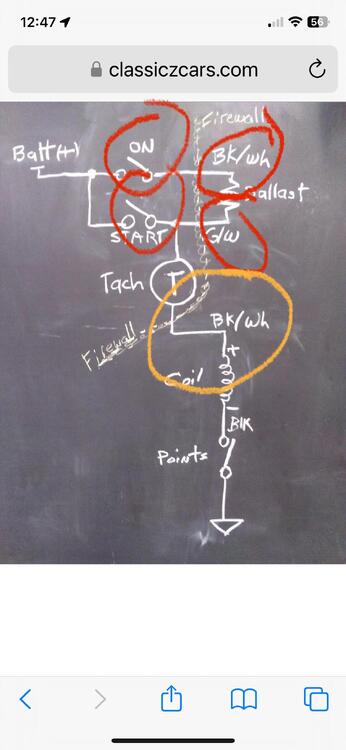 12:47
56
classiczcars.com
Firewall
ON
Batt(+)
BK/Wh
Ballast
START
G/W
Tach
T
BK/Wh
Firewall
+
Coil
-
Blk
Points